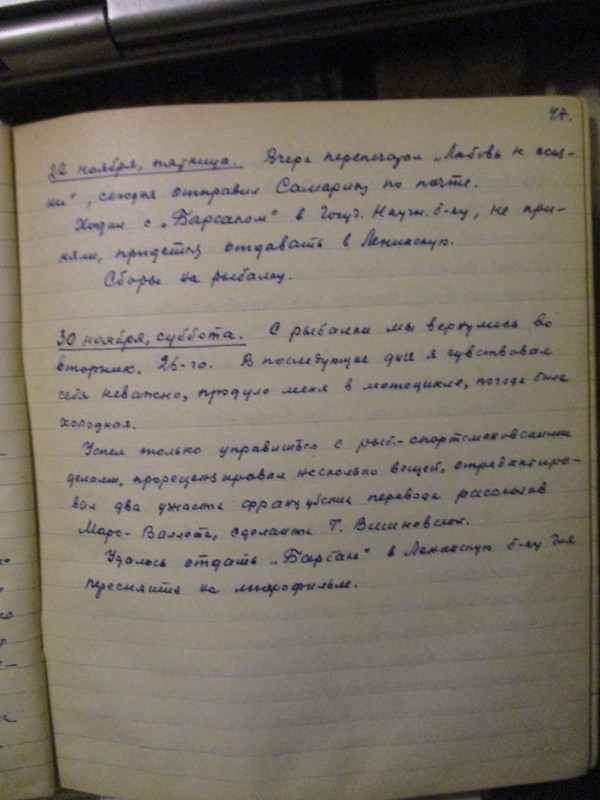 47.
22 ноября, пятница. Вчера перепечатал „Любовь к жиз-
ни“, сегодня отправил Самарину по почте.
Ходил с „Барсаком“ в Госуд. Научн. б-ку, не при-
няли, придется отдавать в Ленинскую.
Сборы на рыбалку.
30 ноября, суббота. С рыбалки мы вернулись во
вторник, 26-го. В последующие дни я чувствовал
себя неважно, продуло меня в мотоцикле, погода была
холодная.
Успел только управиться с рыб.-спортсменовскими
делами, прорецензировал несколько вещей, отредактиро-
вал два ужасные французские перевода рассказов
Марс-Валлетт, сделанных Г. Вишневской.
Удалось отдать „Барсак“ в Ленинскую б-ку для
переснятия на микрофильм.